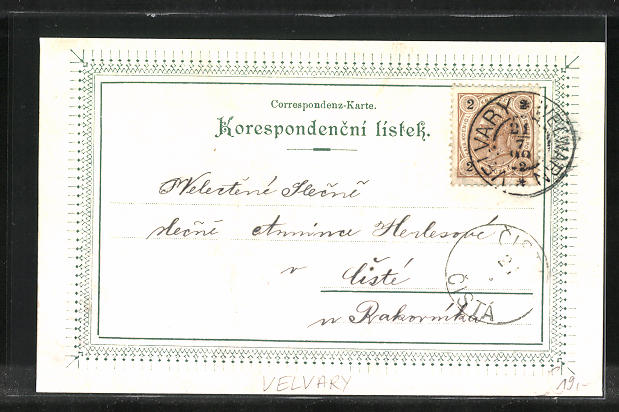 Correspondenz-Karte.
Korespondenční lístek.
2 2
2
VELVARY WELWARN
21
7
Velectěné Slečně
slečně Annince Herlesové
v
Čisté
u Rakovníka
ČISTÁ
VELVARY
19.-